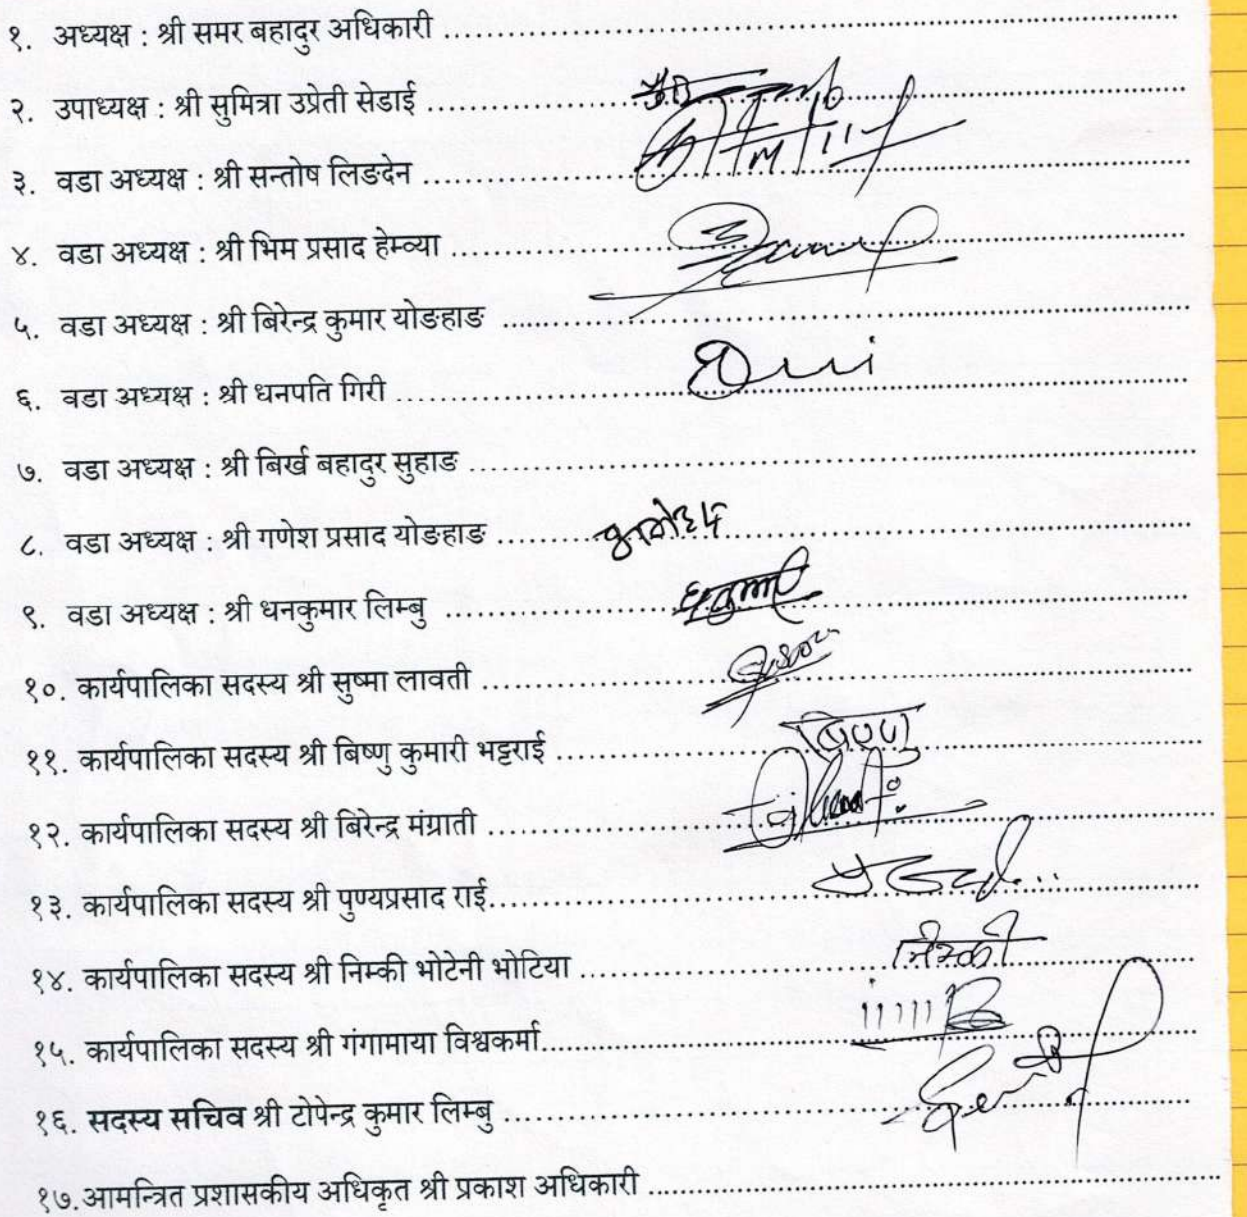 १. अध्यक्ष : श्री समर बहादुर अधिकारी
२. उपाध्यक्ष : श्री सुमित्रा उप्रेती सेडाई
३. वडा अध्यक्ष : श्री सन्तोष लिङदेन
४. वडा अध्यक्ष : श्री भिम प्रसाद हेम्व्या
५. वडा अध्यक्ष : श्री बिरेन्द्र कुमार योङहाङ
६. वडा अध्यक्ष : श्री धनपति गिरी
७. वडा अध्यक्ष : श्री बिर्ख बहादुर सुहाङ
८. वडा अध्यक्ष : श्री गणेश प्रसाद योङहाङ
९. वडा अध्यक्ष : श्री धनकुमार लिम्बु
१०. कार्यपालिका सदस्य श्री सुष्मा लावती
११. कार्यपालिका सदस्य श्री बिष्णु कुमारी भट्टराई बिष्णु
१२. कार्यपालिका सदस्य श्री बिरेन्द्र मंग्राती
१३. कार्यपालिका सदस्य श्री पुण्यप्रसाद राई
१४. कार्यपालिका सदस्य श्री निम्की भोटेनी भोटिया निम्की
१५. कार्यपालिका सदस्य श्री गंगामाया विश्वकर्मा
१६. सदस्य सचिव श्री टोपेन्द्र कुमार लिम्बु
१७.आमन्त्रित प्रशासकीय अधिकृत श्री प्रकाश अधिकारी